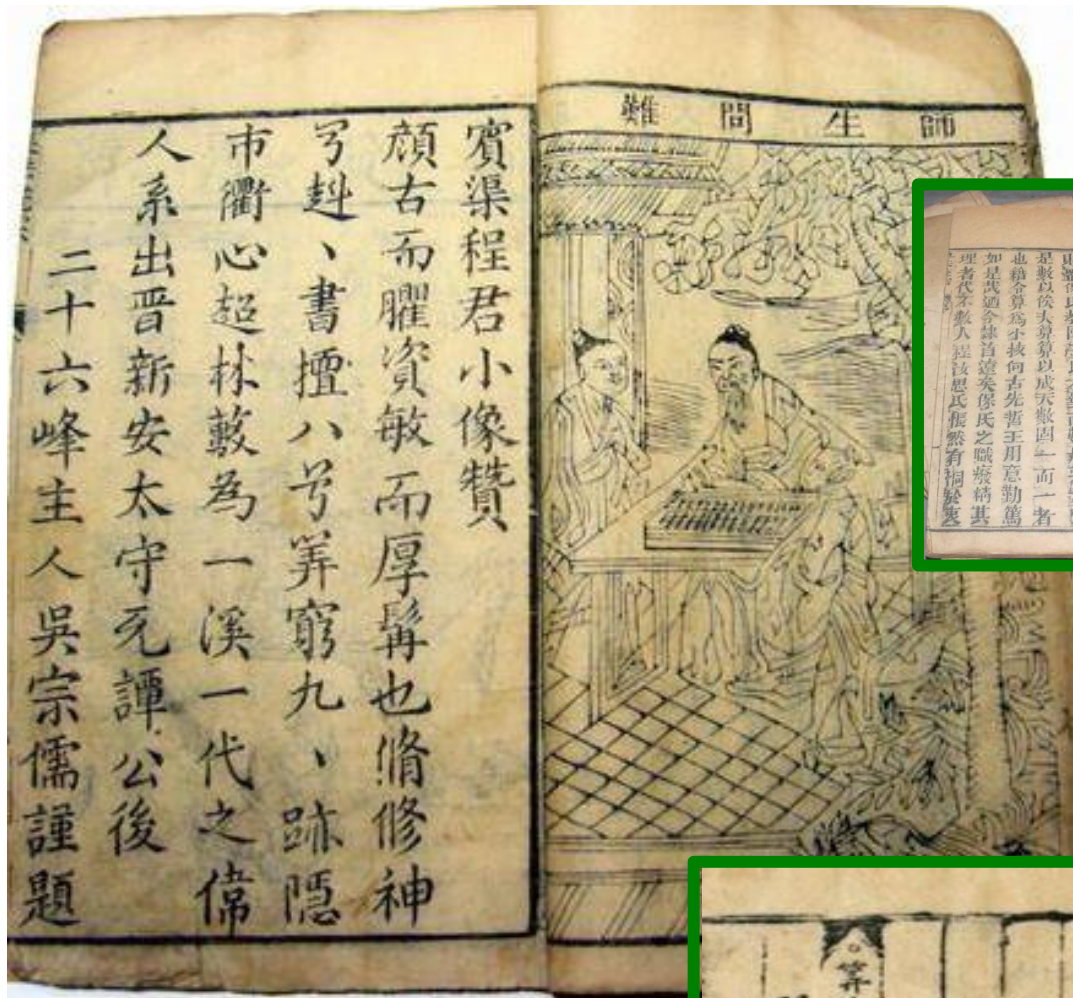 師生問難
賔渠程君小像贊
顔古而臞資敏而厚髯也脩修神
兮赳、書擅八兮筭窮九、跡隱
市衢心超林藪為一溪一代之偉
人系出晋新安太守元譚公後
二十六峰主人吳宗儒謹題
是數以俟大算算以成天數固一而一者
也藉令算為小技何古先哲王用意勤篤
如是哉迺今隸首遠矣保氏之職廢精其
理者代不數人程汝思氏悵然有
筭